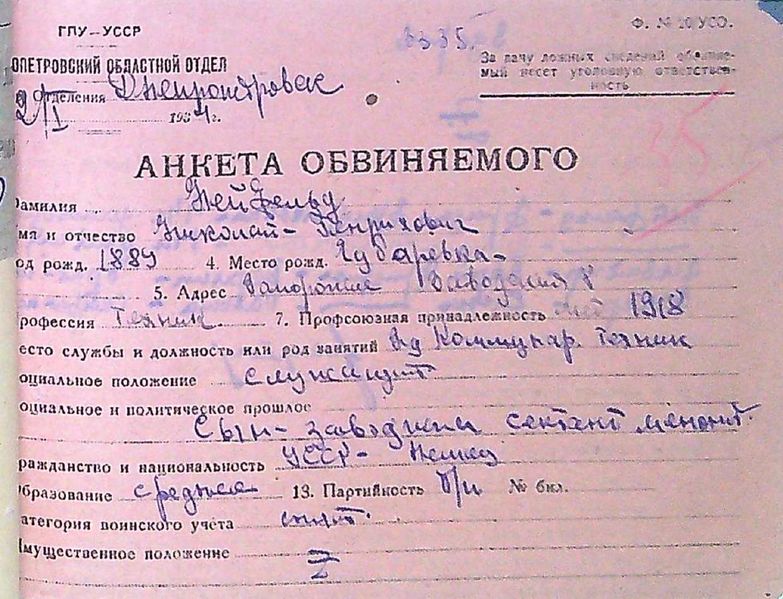 ГПУ—УССР
Ф. № 20 УСО.
ОПЕТРОВСКИЙ ОБЛАСТНОЙ ОТДЕЛ
За дачу ложных сведений обвиняе-
мый несет уголовную ответствен-
ность
отделения Днепропетровск
29/I 1934г.
АНКЕТА ОБВИНЯЕМОГО
амилия Нейфельд
мя и отчество Николай-Генрихович
од рожд. 1889 4. Место рожд. Губаревка-
5. Адрес Запорожие Заводская 8
рофессия Техник 7. Профсоюзная принадлежность 1918
есто службы и должность или род занятий з/д Коммунар. Техник
оциальное положение служащий
оциальное и политическое прошлое
Сын-заводчика сектант менонит.
ражданство и национальность УССР- Немец
бразование среднее 13. Партийность б/п № бил.
атегория воинского учета снят.
мущественное положение